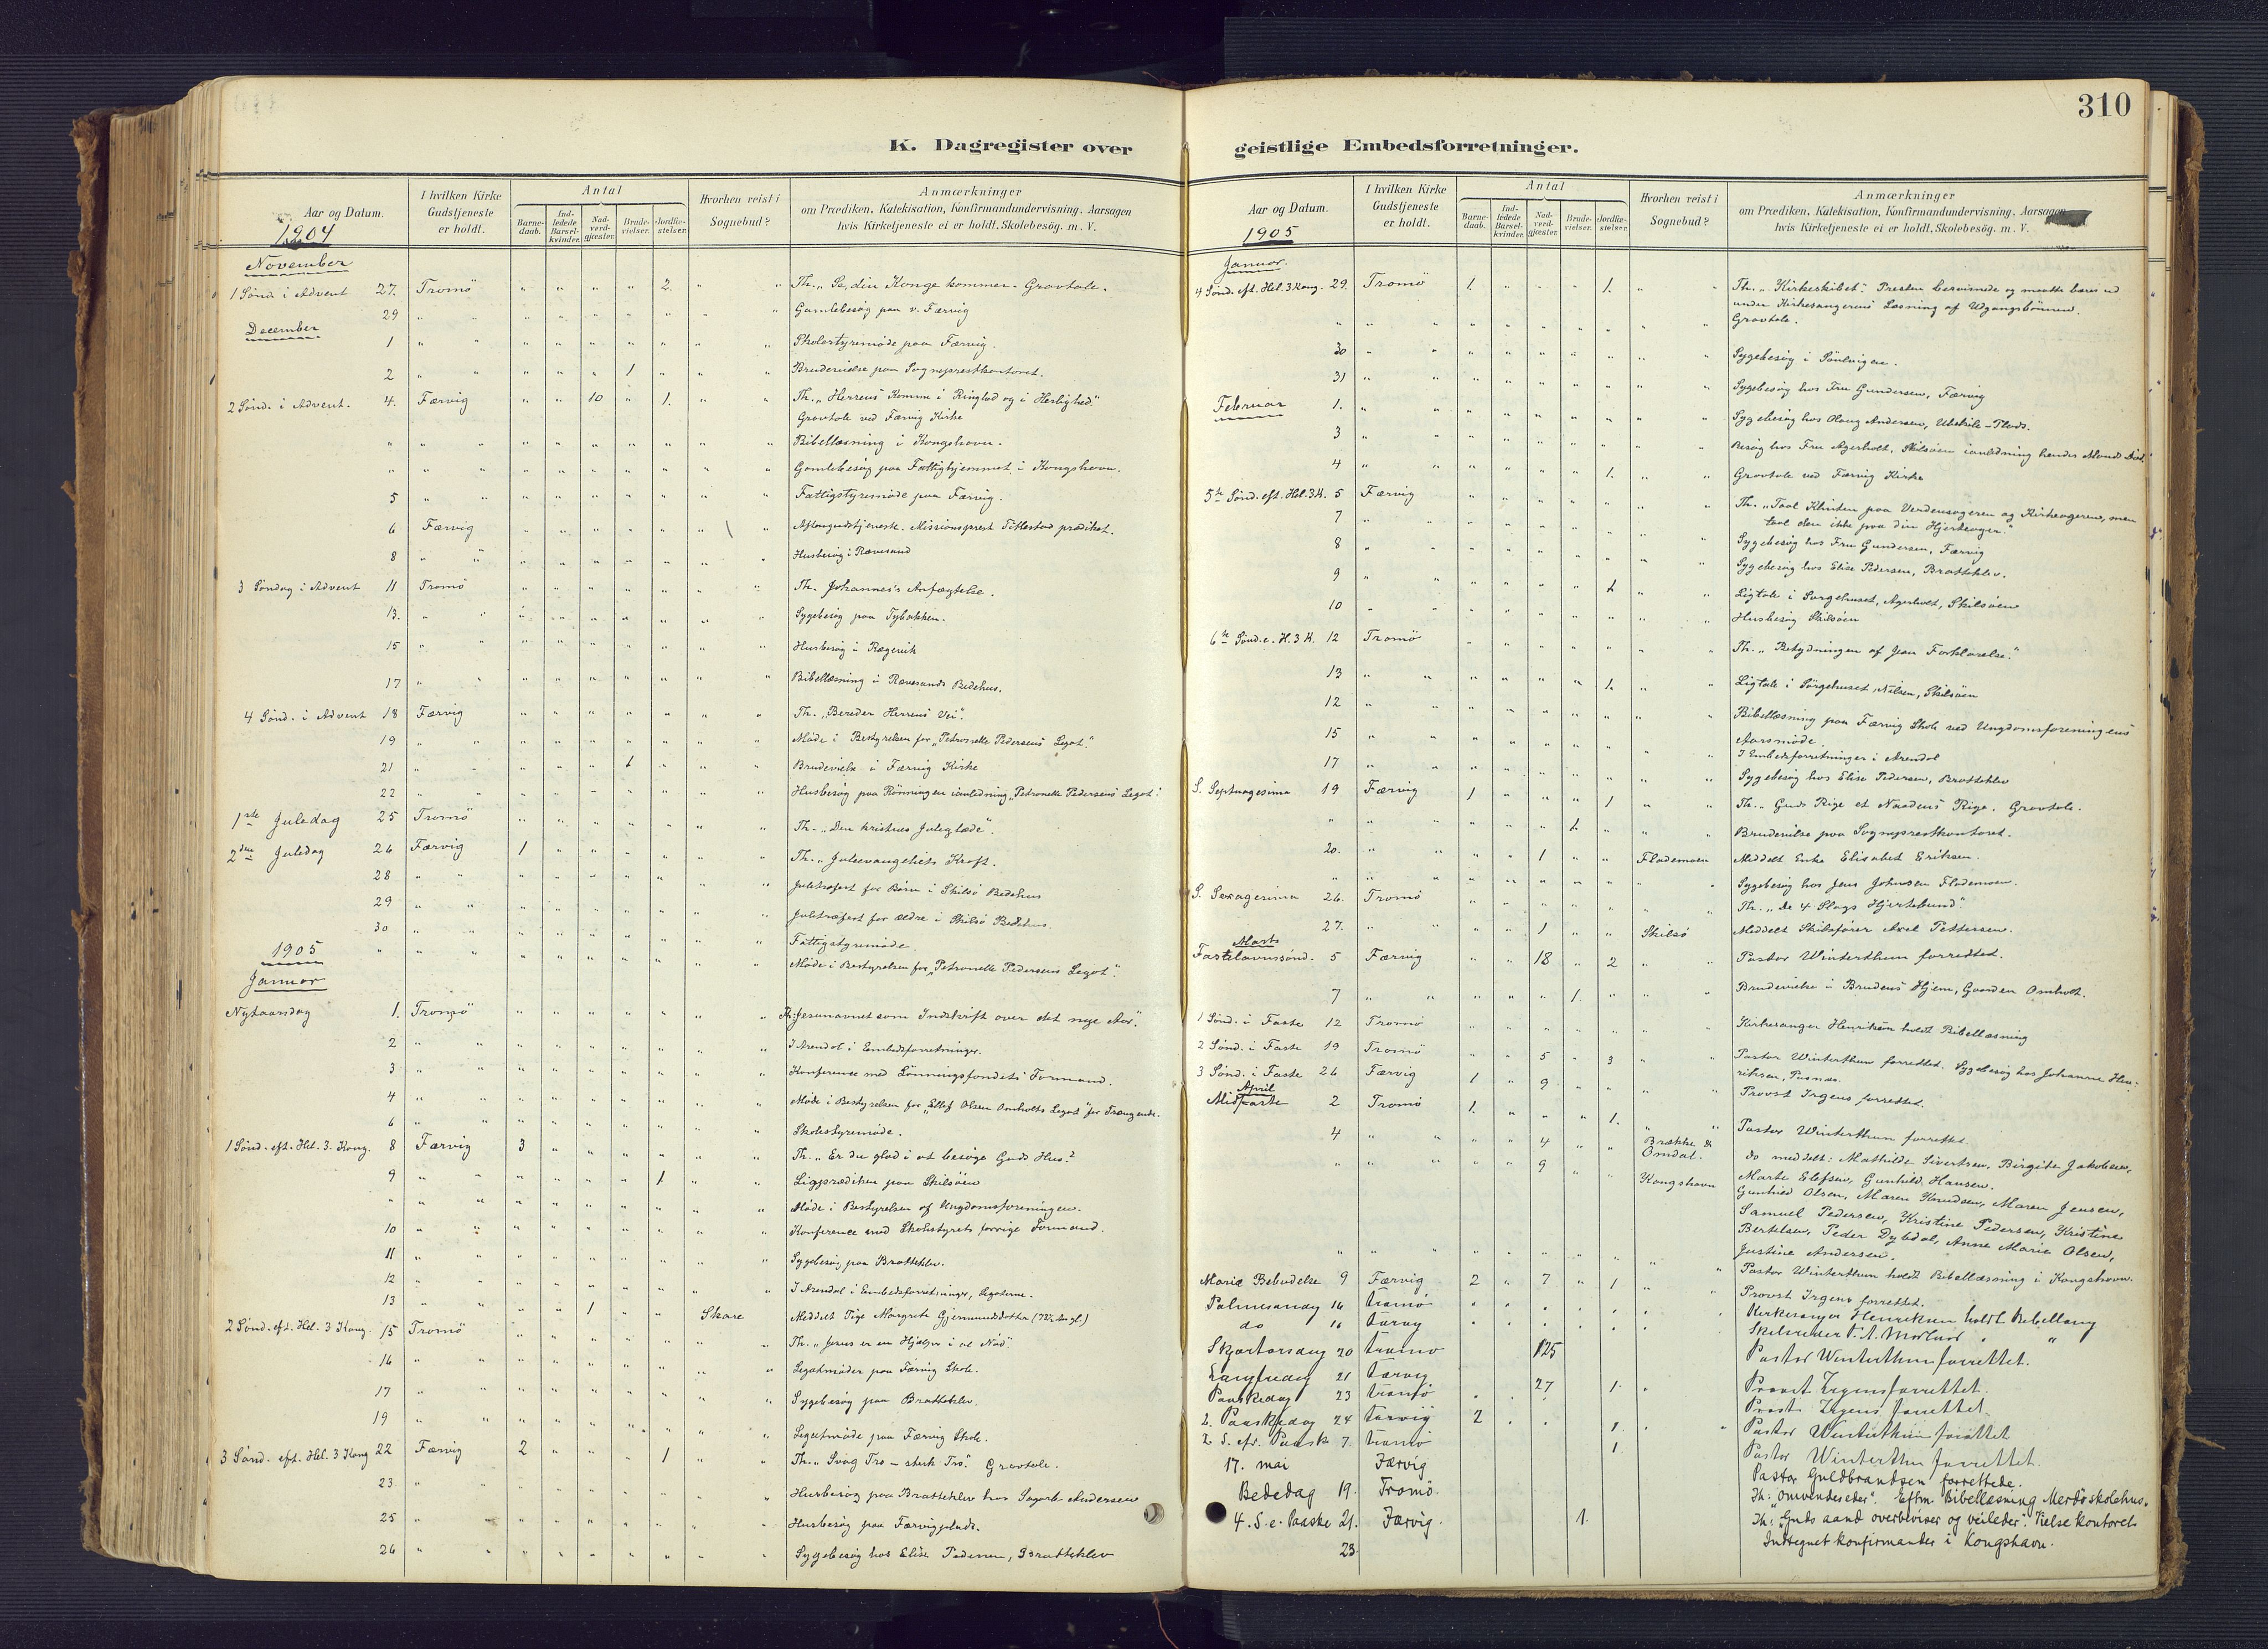 310
K. Dagregister over geistlige Embedsforretninger.
Aar og Datum. 1904
I hvilken Kirke Gudstjeneste er holdt.
Antal
Barnedaab.
Indledede Barselkvinder.
Nadverdgjester.
Brudevielser.
Jordfæstelser.
Hvorhen reist i Sognebud?
Anmærkninger
om Prædiken, Katekisation, Konfirmandundervisning, Aarsagen
hvis Kirketjeneste ei er holdt, Skolebesög. m. V.
November
1 Sönd. i Advent 27. Tromö " " " " 2. " " Th. "Se, din Konge kommer. Gravtale.
29 " " Gamlebesög paa v. Færvig
December
1 " " Skolestyremöde paa Færvig.
2 " " 1 Brudevielse paa Sogneprestkontoret.
2 Sönd. i Advent. 4. Færvig " " 10 " 1. " " Th. "Herrens Komme i Ringhed og i Herlighed."
Gravtale ved Færvig Kirke
" " " Bibellæsning i Kongshavn.
" " " Gamlebesög paa Fattighjemmet i Kongshavn.
5 " " Fattigstyremöde paa Færvig.
6 Færvig Aftengudstjeneste. Missionsprest Tillestad prædiket.
8 " " Husbesög i Rævesand
3 Söndag i Advent 11 Tromö Th. Johannes's Anfægtelse.
13. " " Sygebesög paa Tybakken.
15 " " Husbesög i Rægevik
17 " " Bibellæsning i Rævesands Bedehus.
4 Sönd. i Advent 18 Færvig Th. "Bereder Herrens Vei".
19 " " Möde i Bestyrelsen for "Petronelle Pedersens Legat."
21 " " 1 Brudevielse i Færvig Kirke
22 " " Husbesög paa Rönningen ianledning "Petronelle Pedersens Legat."
1ste Juledag 25 Tromö Th. "Den kristnes Juleglæde".
2den Juledag 26 Færvig 1 Th. "Juleevangeliets Kraft.
28 " " Juletræfest for Börn i Skilsö Bedehus
29 " " Juletræfest for ældre i Skilsö Bedehus.
30 " " Fattigstyremöde.
" " " Möde i Bestyrelsen for "Petronelle Pedersens Legat".
1905
Januar
Nytaarsdag 1. Tromö Th: "Jesunavnet som Indskrift over det nye Aar".
2 " " I Arendal i Embedsforretninger.
3 " " Konference med Lönningsfondets Formand.
4 " " Möde i Bestyrelsen for "Ellef Olsen Omholts Legat" for Trængende.
6 " " Skolestyremöde.
1 Sönd. eft. Hel. 3. Kong. 8 Færvig 3 Th. "Er du glad i at besöge Guds Hus?
9 " " 1. Ligprædiken paa Skilsöen
" " " Möde i Bestyrelsen af Ungdomsforeningen.
10 " " Konference med Skolestyrets forrige Formand.
11 " " Sygebesög paa Bratteklev.
12 " " I Arendal i Embedsforretninger, Legaterne.
13 " " 1 Skare Meddelt Pige Margrete Gjermundsdatter
2 Sönd. eft. Hel. 3 Kong. 15 Tromö Th. "Jesus er en Hjælper i al Nöd".
16 " " Legatmöder paa Færvig Skole.
17 " " Sygebesög paa Bratteklev.
19 " " Legatmöde paa Færvig Skole.
3 Sönd. eft. Hel. 3 Kong 22 Færvig 2 1 Th. "Svag Tro – sterk Tro." Gravtale.
23 " " Husbesög paa Bratteklev hos Andersen
25 " " Husbesög paa Færvigplads.
26 " " Sygebesög hos Elise Pedersen, Bratteklev
Aar og Datum. 1905
I hvilken Kirke Gudstjeneste er holdt.
Antal
Barnedaab.
Indledede Barselkvinder.
Nadverdgjester.
Brudevielser.
Jordfæstelser.
Hvorhen reist i Sognebud?
Anmærkninger
om Prædiken, Katekisation, Konfirmandundervisning, Aarsagen
hvis Kirketjeneste ei er holdt, Skolebesög. m. V.
Januar.
4 Sönd. eft. Hel. 3 Kong. 29. Tromö 1. 1. Th. "Kirkeskibet". Presten besvimede og maatte bæres ud
under Kirkesangerens Læsning af Udgangsbönnen.
Gravtale.
30 " " Sygebesög i
31 " " Sygebesög hos Fru Gundersen, Færvig
Februar 1. " " Sygebesög hos Olaug Andersen,
3 " " Besög hos Fru Agerholt, Skilsöen ianledning hendes Mands Död.
4 " " 1. Gravtale ved Færvig Kirke
5te Sönd. eft. Hel. 3 K. 5 Færvig Th. "Taal Klinten paa Verdensageren og Kirkeageren, men
taal den ikke paa din Hjerteager."
7 " " Sygebesög hos Fru Gundersen, Færvig
8 " " Sygebesög hos Elise Pedersen, Bratteklev.
9 " " 1. Ligtale i Sörgehuset, Agerholt, Skilsöen
10 " " Husbesög Skilsöen
6te Sönd. e. H. 3 K. 12 Tromö Th. "Betydningen af Jesu Forklarelse."
13 " " 1. Ligtale i Sörgehuset, Nilsen, Skilsöen
12 " " Bibellæsning paa Færvig Skole ved Ungdomsforeningens
Aarsmöde.
15 " " I Embedsforretninger i Arendal
17 " " Sygebesög hos Elise Pedersen, Bratteklev
S. Septuagesima 19 Færvig 1 1 Th. "Guds Rige et Naadens Rige. Gravtale.
" " " 1. Brudevielse paa Sogneprestkontoret.
20. " " 1 Flademoen Meddelt Enke Elisabet Eriksen.
" " " Sygebesög hos Jens Johnsen Flademoen.
S. Sexagesima 26. Tromö Th. "de 4 Slags Hjertebund".
27. " " 1 Skilsö Meddelt Skibsförer Axel Pettersen.
Marts
Fastelavnssönd. 5 Færvig 18 " 2 Pastor Winterthun forrettet.
7 " " 1. Brudevielse i Brudens Hjem, Gaarden Omholt.
1 Sönd. i Faste 12 Tromö Kirkesanger Henriksen holdt Bibellæsning
2 Sönd. i Faste 19 Tromö 5 " 3 Pastor Winterthun forrettet. Sygebesög hos Johanne Hen-
riksen, Pusnæs.
3 Sönd. i Faste 26 Færvig 1 " 9 Provst Irgens forrettet.
April
Midfaste 2 Tromö 1. 1. Pastor Winterthun forrettet
4 " " 4 Brække & Omdal. do meddelt: Mathilde Sivertsen, Birgite Jakobsen,
Marte Elefsen, Gunhild Hansen.
" " " 9 Kongshavn Gunhild Olsen, Maren Knudsen, Maren Jensen,
Samuel Pedersen, Kristine Pedersen, Kristine
Bertelsen, Peder Dybdal, Anne Marie Olsen,
Justine Andersen.
" " " Pastor Winterthun holdt Bibellæsning i Kongshavn.
Mariæ Bebudelse 9 Færvig 2 " 7 " 1 Provst Irgens forrettet.
Palmesöndag 16 Tromö Kirkesanger Henriksen holdt Bibellæsning
do 16 Færvig Skibsreder " "
Skjærtorsdag 20 Tromö 125 Pastor Winterthun forrettet.
Langfredag 21 Færvig 27 1. Provst Irgens forrettet.
Paaskedag 23 Tromö Provst Irgens forrettet
2. Paaskedag 24 Færvig 2 1. Pastor Winterthun forrettet
2. S. eft. Paaske 7. Tromö 1. Pastor Winterthun forrettet.
17. mai Færvig Pastor Guldbrandsen forrettede.
Bededag 19. Tromö. Th: "Omvender eder". Eftm Bibellæsning Merdö skolehus.
4. S. e. Paaske 21. Færvig. 1. Th: "Guds aand overbeviser og veileder". Vielse kontoret
23. Indtegnet konfirmander i Kongshavn.